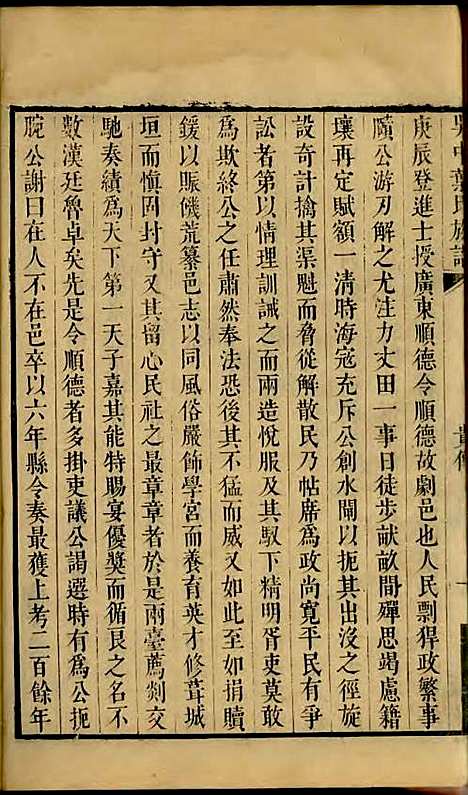 庚辰登進士授廣東順德令順德故劇邑也人民剽猂政繁事
隤公游刃解之尤注力丈田一事日徒步献畝間殫思竭慮籍
壤再定賦額一清時海寇充斥公創水閘以扼出沒之徑旋
設奇計擒其渠魁而脅從解散民乃帖席為政尚寬平民有爭
訟者第以情理訓誡之而兩造悅服及其馭下精明胥吏莫敢
為欺終公之任肅然奉法恐後其不猛而威又如此至如捐贖
鍰以賑饑荒纂邑志以同風俗嚴飾學宮而養育英才修葺城
垣而慎固封守又其留心民社之最章章者於是兩臺薦剡交
馳奏績為天下第一天子嘉其能特賜宴優獎而循良之名不
數漢廷魯卓矣先是令順德者多掛吏議公謁選時有為公扼
腕公謝曰在人不在邑卒以六年縣令奏最獲上考二百餘年